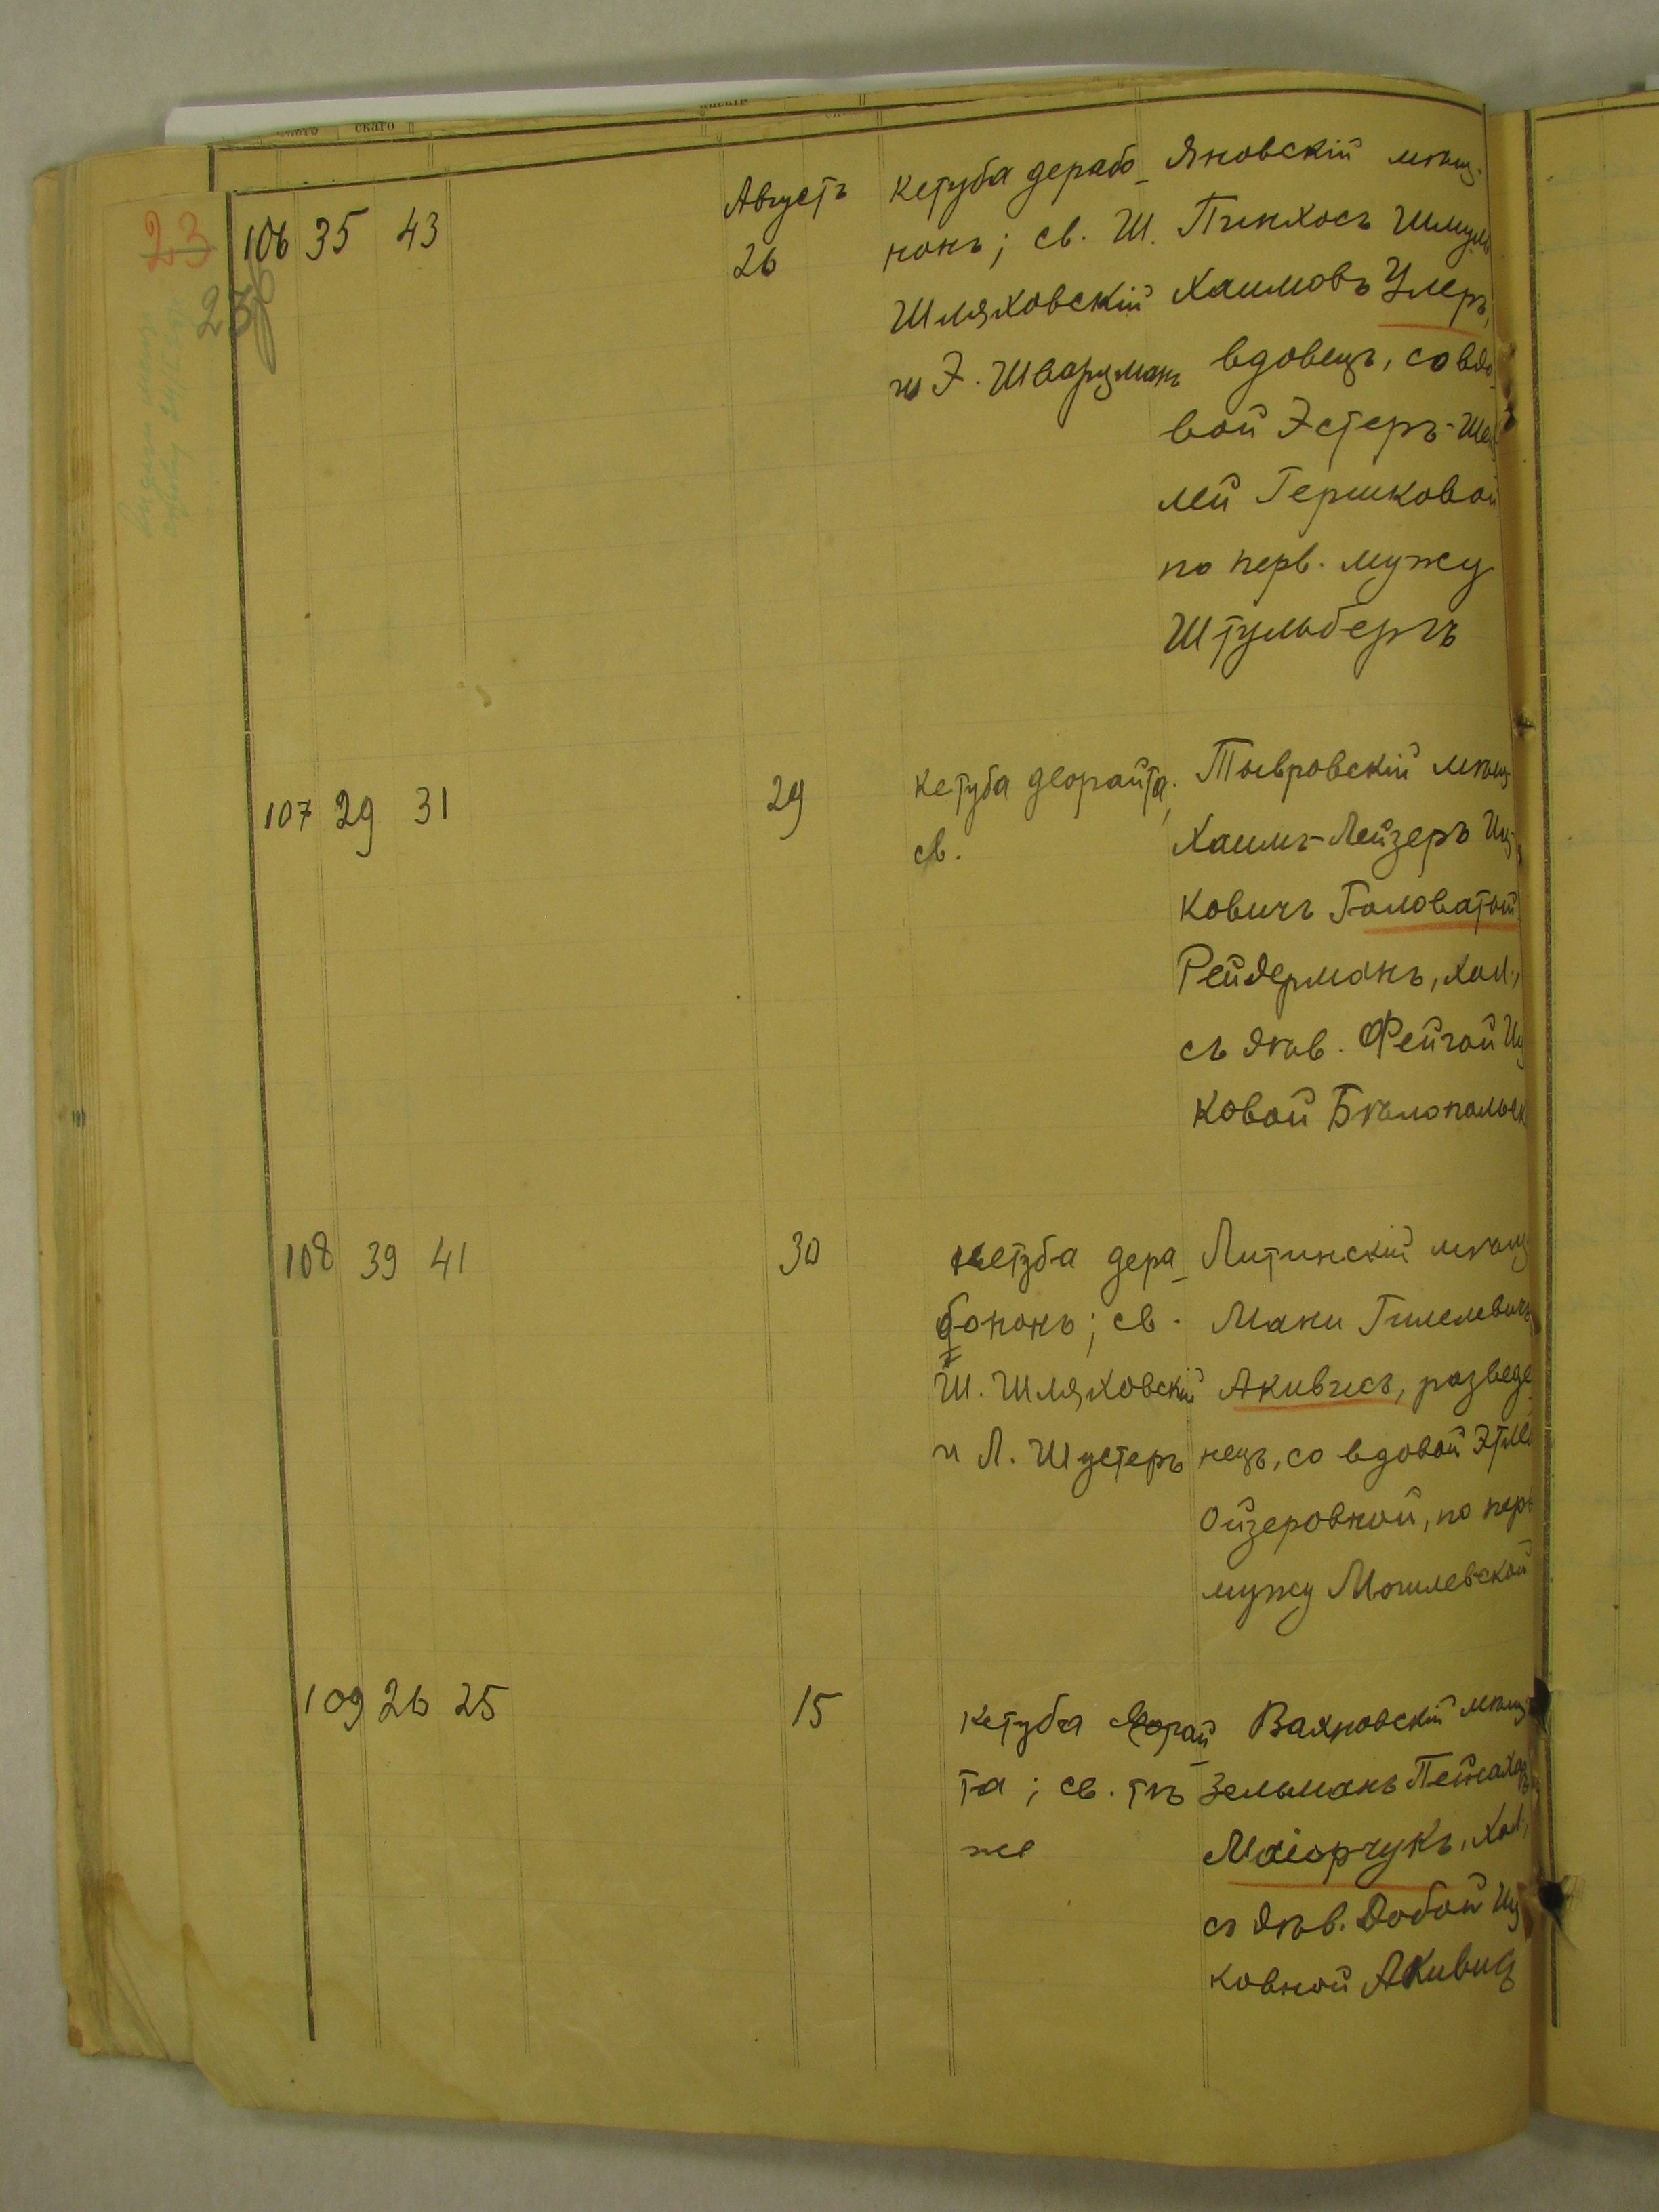 скаго
23
236
106 35 43
Августъ
26
Кетуба дерабо-
нонъ; св. Ш.
Шляховскій
и Э. Шварцманъ
Яновскій мѣщ.
Пинхосъ Шмуль
Хаимовъ Улеръ,
вдовецъ, со вдо-
вой Эстеръ-Шей
лей Гершковой
по перв. мужу
Штульбергъ
107 29 31
29
Кетуба деорайта,
св.
Тывровскій мѣщ.
Хаимъ-Лейзеръ Иц-
ковичъ Головатый
Рейдерманъ, хол.,
съ дѣв. Фейгой Иц
ковой Бѣлопольск
108 39 41
30
Кетуба дера-
бононъ; св.
Ш. Шляховскій
и Л. Шустеръ
Литинскій мѣщ
Мани Гилелевичъ
Акивисъ, разведе
нецъ, со вдовой Этле
Ойзеровной, по перв
мужу Могилевской
109 26 25
15
Кетуба деорай-
та; св. тѣ
же
Вахновскій мѣщ
Зельманъ Пейсахов
Маіорчукъ, хол.,
съ дѣв. Добой Иц
ковной Акивис